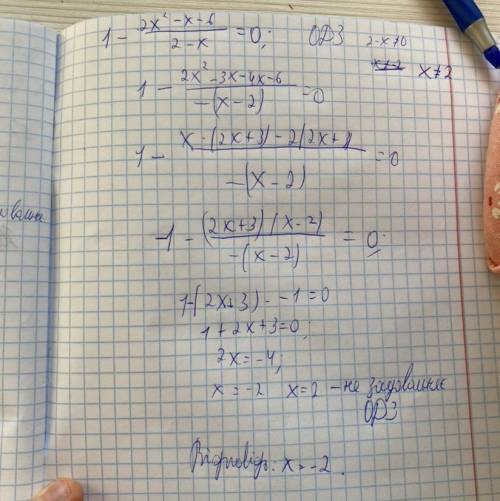 1 - (2x² - x - 6)/(2 - x) = 0; ОДЗ 2-x≠0
x≠2
1 - (2x² - 3x - 4x - 6)/(-(x - 2)) = 0
1 - (x - (2x+3) - 2(2x+3))/(-(x - 2)) = 0
1 - ((2x+3)(x-2))/(-(x-2)) = 0;
1-(2x+3) · -1 = 0
1 + 2x + 3 = 0;
2x = -4;
x = -2 x = 2 - не задовольняє
ОДЗ
Відповідь: x = -2.